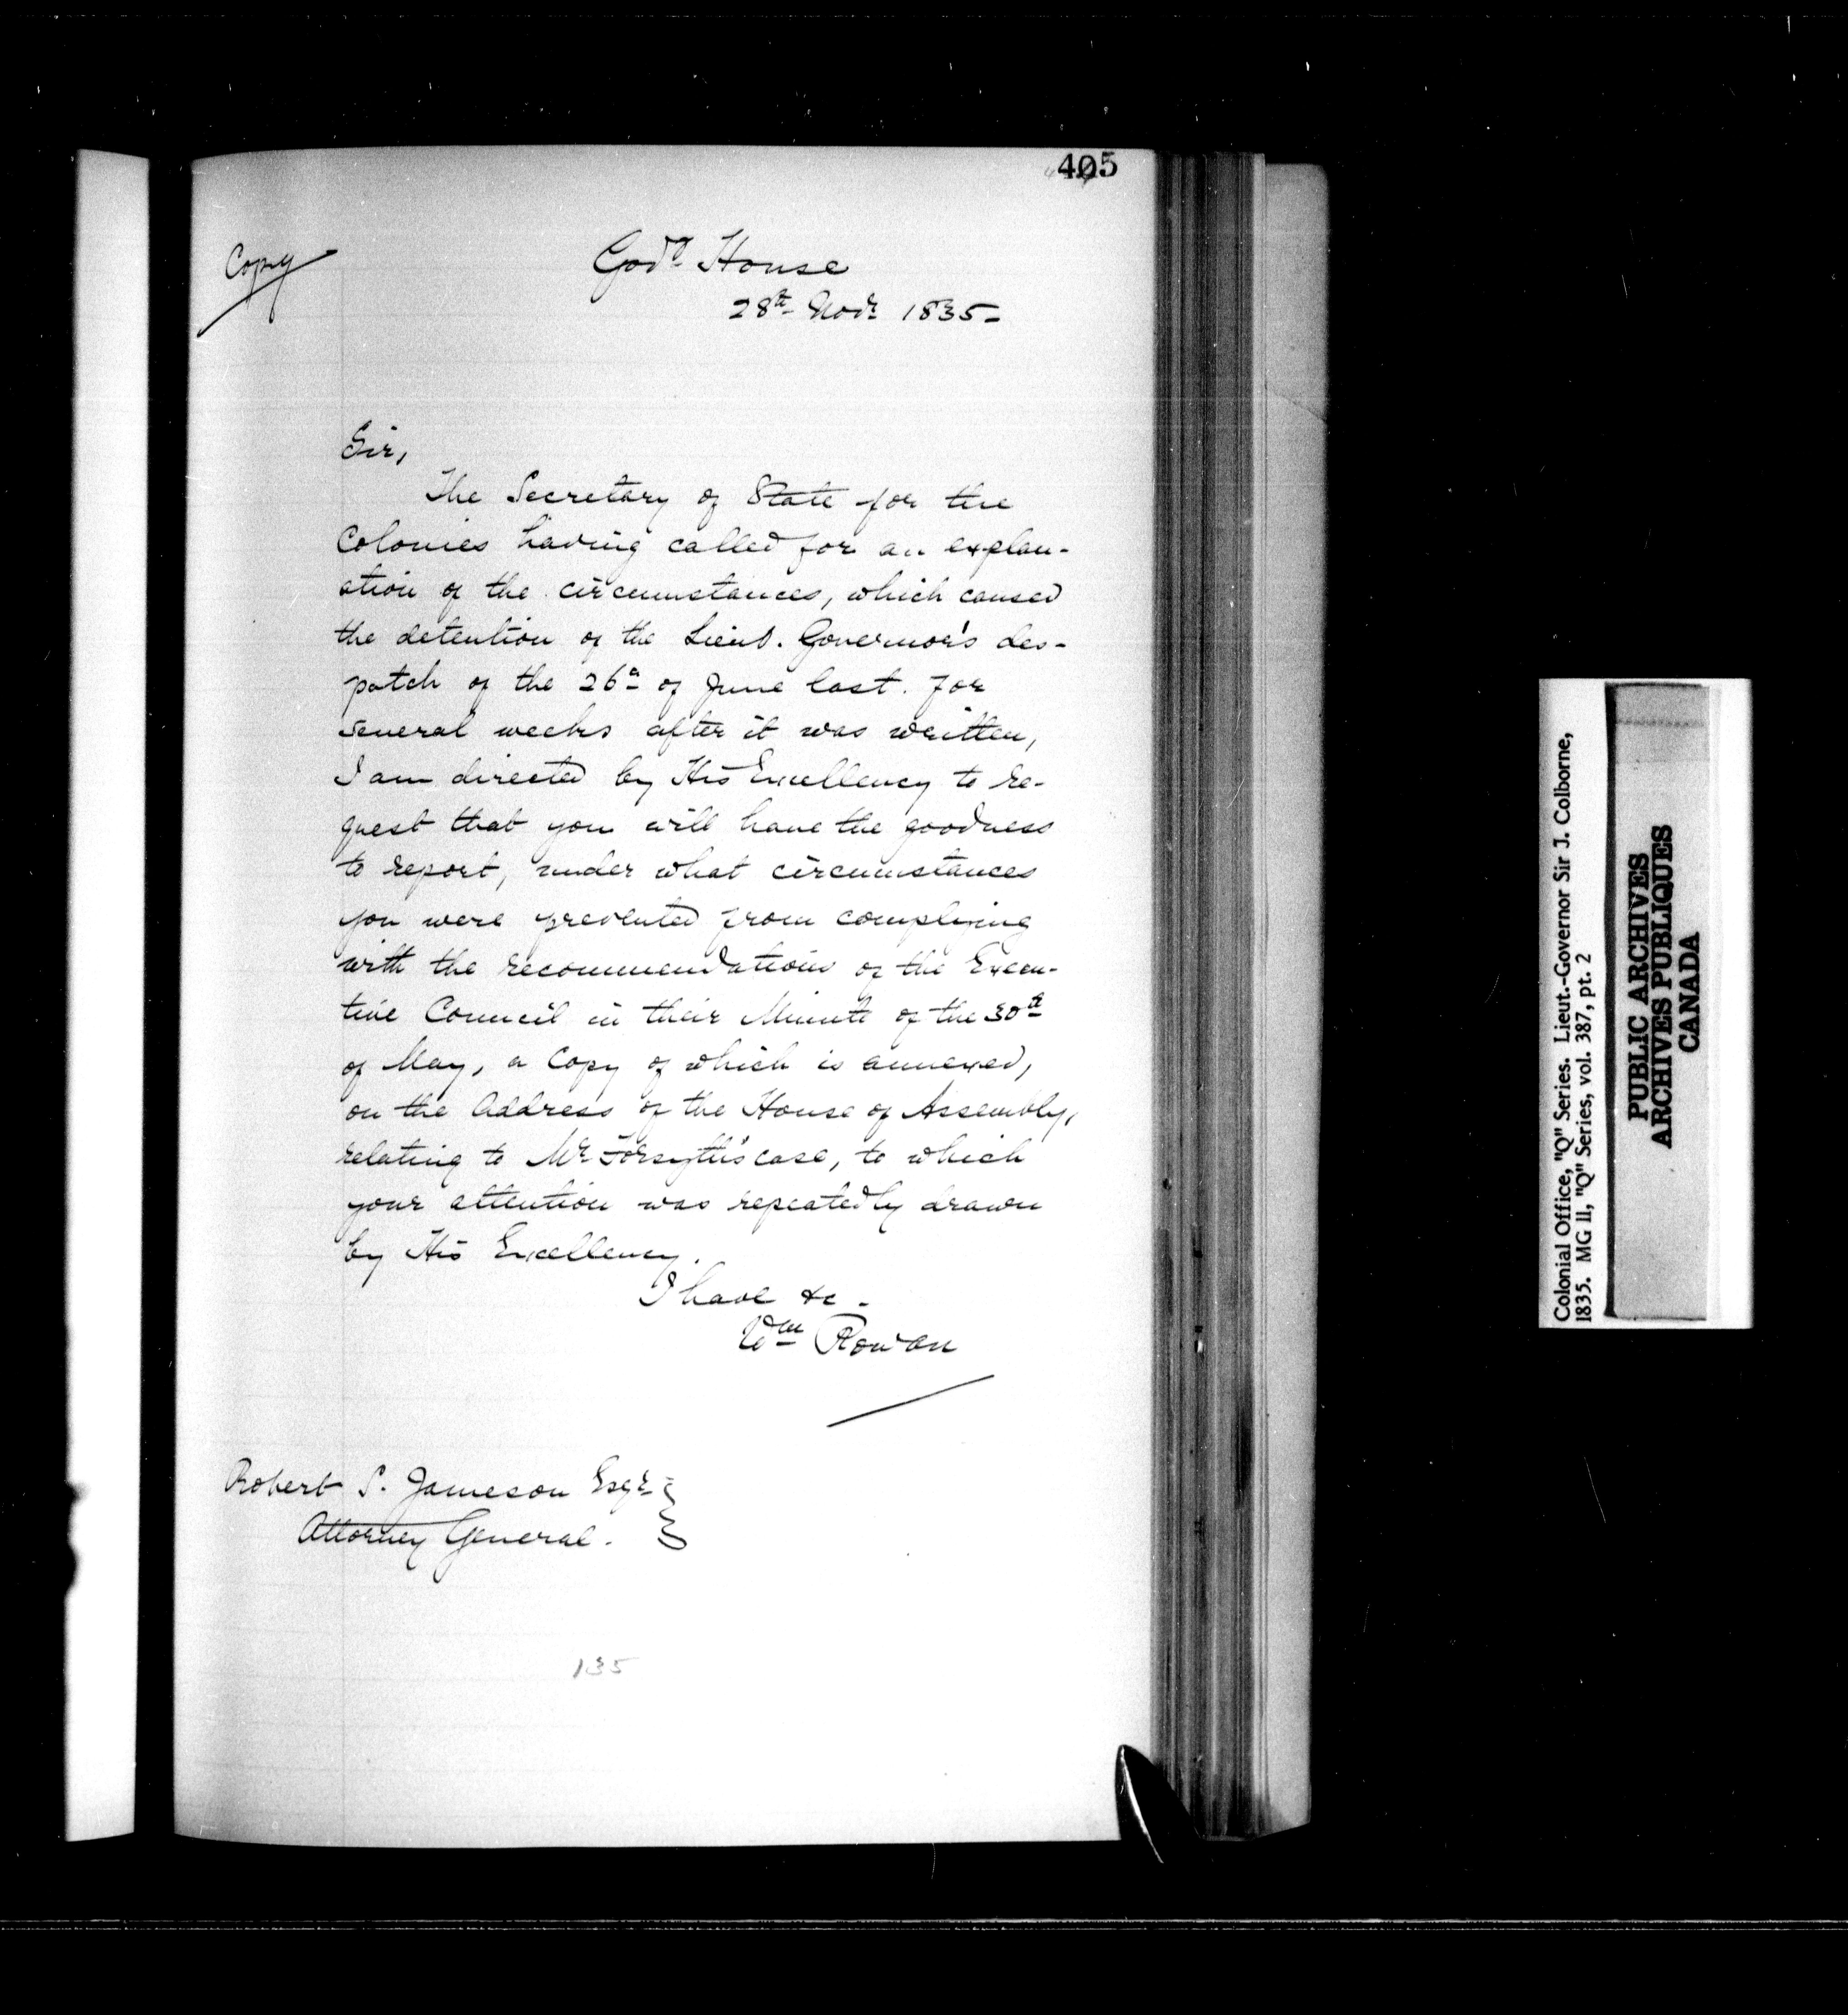 405
Copy
Govt House
28th Novr 1835-
Sir,
The Secretary of State for the
Colonies having called for an explan-
ation of the circumstances, which caused
the detention of the Lieut. Governor's des-
patch of the 26th of June last. for
several weeks after it was written,
I am directed by His Excellency to re-
quest that you will have the goodness
to report, under what circumstances
you were prevented from complying
with the recommendation of the Execu-
tive Council in their Minute of the 30th
of May, a Copy of which is annexed,
on the Address of the House of Assembly,
relating to Mr Forsyth's case, to which
your attention was repeatedly drawn
by His Excellency.
I have &c.
Wm Rowan
Robert S. Jameson Esqr
Attorney General.
135
Colonial Office, "Q" Series. Lieut.-Governor Sir J. Colborne,
1835. MG 11, "Q" Series, vol. 387, pt. 2
PUBLIC ARCHIVES
ARCHIVES PUBLIQUES
CANADA